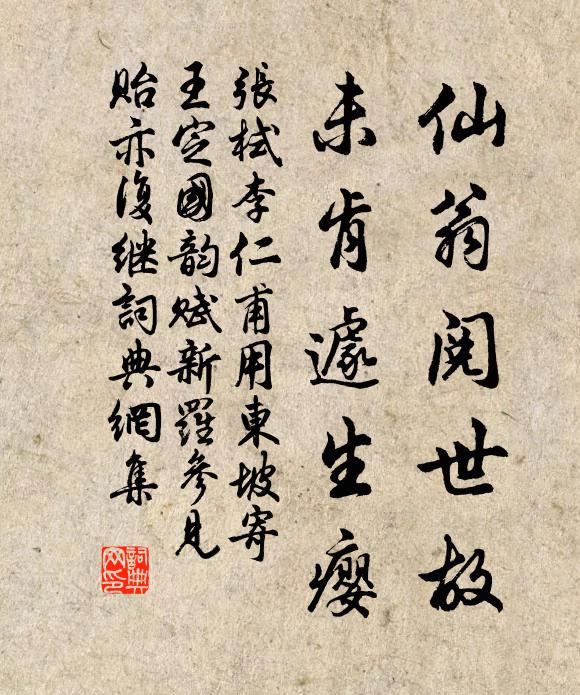 仙翁阅世故
未肯遽生瘿
張栻李仁甫用東坡寄
王定國韵赋新羅參見
貽亦復继詞典網集
詞典网印